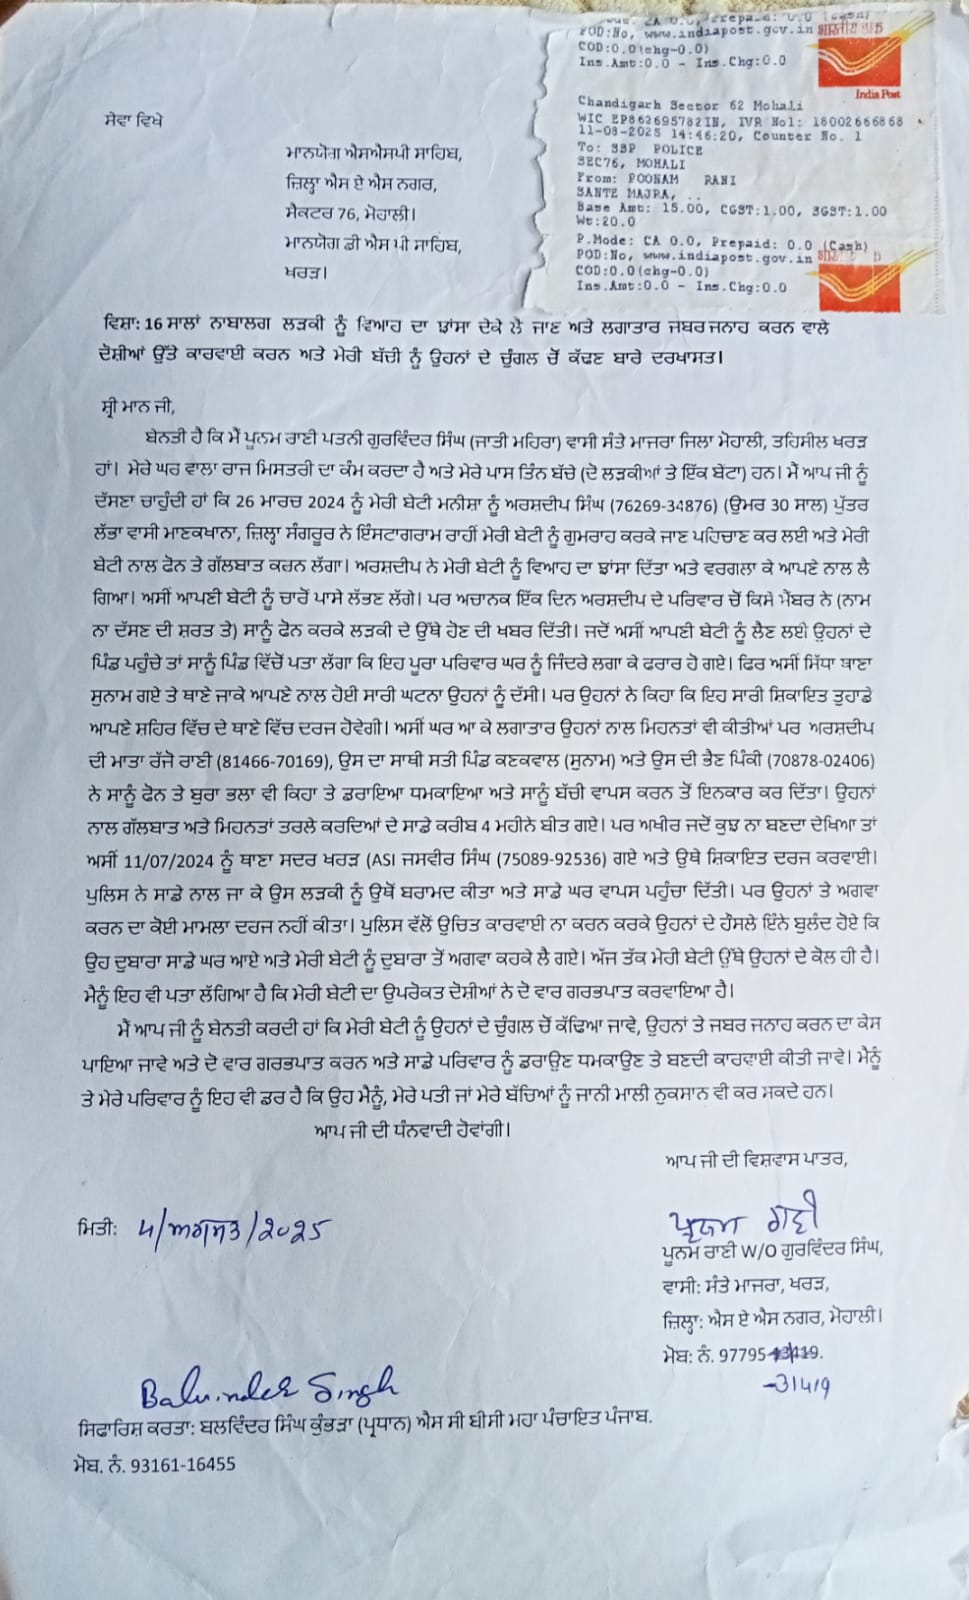 POD:No, www.indiapost.gov.in
COD:0.0(chg-0.0)
Ins.Amt:0.0 - Ins.Chg:0.0
India Post
Chandigarh Sector 62 Mohali
WIC EP862695782IN, IVR No1: 18002666868
11-08-2025 14:46:20, Counter No. 1
To: SSP POLICE
SEC76, MOHALI
From: POONAM RANI
SANTE MAJRA, ..
Base Amt: 15.00, CGST:1.00, SGST:1.00
Wt:20.0
P.Mode: CA 0.0, Prepaid: 0.0 (Cash)
POD:No, www.indiapost.gov.in
COD:0.0(chg-0.0)
Ins.Amt:0.0 - Ins.Chg:0.0
ਸੇਵਾ ਵਿਖੇ
ਮਾਨਯੋਗ ਐਸਐਸਪੀ ਸਾਹਿਬ,
ਜ਼ਿਲ੍ਹਾ ਐਸ ਏ ਐਸ ਨਗਰ,
ਸੈਕਟਰ 76, ਮੋਹਾਲੀ।
ਮਾਨਯੋਗ ਡੀ ਐਸ ਪੀ ਸਾਹਿਬ,
ਖਰੜ।
ਵਿਸ਼ਾ: 16 ਸਾਲਾਂ ਨਾਬਾਲਗ ਲੜਕੀ ਨੂੰ ਵਿਆਹ ਦਾ ਝਾਂਸਾ ਦੇਕੇ ਲੈ ਜਾਣ ਅਤੇ ਲਗਾਤਾਰ ਜਬਰ ਜਨਾਹ ਕਰਨ ਵਾਲੇ
ਦੋਸ਼ੀਆਂ ਉੱਤੇ ਕਾਰਵਾਈ ਕਰਨ ਅਤੇ ਮੇਰੀ ਬੱਚੀ ਨੂੰ ਉਹਨਾਂ ਦੇ ਚੁੰਗਲ ਚੋਂ ਕੱਢਣ ਬਾਰੇ ਦਰਖਾਸਤ।
ਸ਼੍ਰੀ ਮਾਨ ਜੀ,
ਬੇਨਤੀ ਹੈ ਕਿ ਮੈਂ ਪੂਨਮ ਰਾਣੀ ਪਤਨੀ ਗੁਰਵਿੰਦਰ ਸਿੰਘ (ਜਾਤੀ ਮਹਿਰਾ) ਵਾਸੀ ਸੰਤੇ ਮਾਜਰਾ ਜਿਲਾ ਮੋਹਾਲੀ, ਤਹਿਸੀਲ ਖਰੜ
ਹਾਂ। ਮੇਰੇ ਘਰ ਵਾਲਾ ਰਾਜ ਮਿਸਤਰੀ ਦਾ ਕੰਮ ਕਰਦਾ ਹੈ ਅਤੇ ਮੇਰੇ ਪਾਸ ਤਿੰਨ ਬੱਚੇ (ਦੋ ਲੜਕੀਆਂ ਤੇ ਇੱਕ ਬੇਟਾ) ਹਨ। ਮੈਂ ਆਪ ਜੀ ਨੂੰ
ਦੱਸਣਾ ਚਾਹੁੰਦੀ ਹਾਂ ਕਿ 26 ਮਾਰਚ 2024 ਨੂੰ ਮੇਰੀ ਬੇਟੀ ਮਨੀਸ਼ਾ ਨੂੰ ਅਰਸ਼ਦੀਪ ਸਿੰਘ (76269-34876) (ਉਮਰ 30 ਸਾਲ) ਪੁੱਤਰ
ਲੱਭਾ ਵਾਸੀ ਮਾਣਕਖਾਨਾ, ਜ਼ਿਲ੍ਹਾ ਸੰਗਰੂਰ ਨੇ ਇੰਸਟਾਗਰਾਮ ਰਾਹੀਂ ਮੇਰੀ ਬੇਟੀ ਨੂੰ ਗੁਮਰਾਹ ਕਰਕੇ ਜਾਣ ਪਹਿਚਾਣ ਕਰ ਲਈ ਅਤੇ ਮੇਰੀ
ਬੇਟੀ ਨਾਲ ਫੋਨ ਤੇ ਗੱਲਬਾਤ ਕਰਨ ਲੱਗਾ। ਅਰਸ਼ਦੀਪ ਨੇ ਮੇਰੀ ਬੇਟੀ ਨੂੰ ਵਿਆਹ ਦਾ ਝਾਂਸਾ ਦਿੱਤਾ ਅਤੇ ਵਰਗਲਾ ਕੇ ਆਪਣੇ ਨਾਲ ਲੈ
ਗਿਆ। ਅਸੀਂ ਆਪਣੀ ਬੇਟੀ ਨੂੰ ਚਾਰੋਂ ਪਾਸੇ ਲੱਭਣ ਲੱਗੇ। ਪਰ ਅਚਾਨਕ ਇੱਕ ਦਿਨ ਅਰਸ਼ਦੀਪ ਦੇ ਪਰਿਵਾਰ ਚੋਂ ਕਿਸੇ ਮੈਂਬਰ ਨੇ (ਨਾਮ
ਨਾ ਦੱਸਣ ਦੀ ਸ਼ਰਤ ਤੇ) ਸਾਨੂੰ ਫੋਨ ਕਰਕੇ ਲੜਕੀ ਦੇ ਉੱਥੇ ਹੋਣ ਦੀ ਖਬਰ ਦਿੱਤੀ। ਜਦੋਂ ਅਸੀਂ ਆਪਣੀ ਬੇਟੀ ਨੂੰ ਲੈਣ ਲਈ ਉਹਨਾਂ ਦੇ
ਪਿੰਡ ਪਹੁੰਚੇ ਤਾਂ ਸਾਨੂੰ ਪਿੰਡ ਵਿੱਚੋਂ ਪਤਾ ਲੱਗਾ ਕਿ ਇਹ ਪੂਰਾ ਪਰਿਵਾਰ ਘਰ ਨੂੰ ਜਿੰਦਰੇ ਲਗਾ ਕੇ ਫਰਾਰ ਹੋ ਗਏ। ਫਿਰ ਅਸੀਂ ਸਿੱਧਾ ਥਾਣਾ
ਸੁਨਾਮ ਗਏ ਤੇ ਥਾਣੇ ਜਾਕੇ ਆਪਣੇ ਨਾਲ ਹੋਈ ਸਾਰੀ ਘਟਨਾ ਉਹਨਾਂ ਨੂੰ ਦੱਸੀ। ਪਰ ਉਹਨਾਂ ਨੇ ਕਿਹਾ ਕਿ ਇਹ ਸਾਰੀ ਸ਼ਿਕਾਇਤ ਤੁਹਾਡੇ
ਆਪਣੇ ਸ਼ਹਿਰ ਵਿੱਚ ਦੇ ਥਾਣੇ ਵਿੱਚ ਦਰਜ ਹੋਵੇਗੀ। ਅਸੀਂ ਘਰ ਆ ਕੇ ਲਗਾਤਾਰ ਉਹਨਾਂ ਨਾਲ ਮਿਹਨਤਾਂ ਵੀ ਕੀਤੀਆਂ ਪਰ ਅਰਸ਼ਦੀਪ
ਦੀ ਮਾਤਾ ਰੱਜੋ ਰਾਣੀ (81466-70169), ਉਸ ਦਾ ਸਾਥੀ ਸਤੀ ਪਿੰਡ ਕਣਕਵਾਲ (ਸੁਨਾਮ) ਅਤੇ ਉਸ ਦੀ ਭੈਣ ਪਿੰਕੀ (70878-02406)
ਨੇ ਸਾਨੂੰ ਫੋਨ ਤੇ ਬੁਰਾ ਭਲਾ ਵੀ ਕਿਹਾ ਤੇ ਡਰਾਇਆ ਧਮਕਾਇਆ ਅਤੇ ਸਾਨੂੰ ਬੱਚੀ ਵਾਪਸ ਕਰਨ ਤੋਂ ਇਨਕਾਰ ਕਰ ਦਿੱਤਾ। ਉਹਨਾਂ
ਨਾਲ ਗੱਲਬਾਤ ਅਤੇ ਮਿਹਨਤਾਂ ਤਰਲੇ ਕਰਦਿਆਂ ਦੇ ਸਾਡੇ ਕਰੀਬ 4 ਮਹੀਨੇ ਬੀਤ ਗਏ। ਪਰ ਅਖੀਰ ਜਦੋਂ ਕੁਝ ਨਾ ਬਣਦਾ ਦੇਖਿਆ ਤਾਂ
ਅਸੀਂ 11/07/2024 ਨੂੰ ਥਾਣਾ ਸਦਰ ਖਰੜ (ASI ਜਸਵੀਰ ਸਿੰਘ (75089-92536) ਗਏ ਅਤੇ ਉਥੇ ਸ਼ਿਕਾਇਤ ਦਰਜ ਕਰਵਾਈ।
ਪੁਲਿਸ ਨੇ ਸਾਡੇ ਨਾਲ ਜਾ ਕੇ ਉਸ ਲੜਕੀ ਨੂੰ ਉਥੋਂ ਬਰਾਮਦ ਕੀਤਾ ਅਤੇ ਸਾਡੇ ਘਰ ਵਾਪਸ ਪਹੁੰਚਾ ਦਿੱਤੀ। ਪਰ ਉਹਨਾਂ ਤੇ ਅਗਵਾ
ਕਰਨ ਦਾ ਕੋਈ ਮਾਮਲਾ ਦਰਜ ਨਹੀਂ ਕੀਤਾ। ਪੁਲਿਸ ਵੱਲੋਂ ਉਚਿਤ ਕਾਰਵਾਈ ਨਾ ਕਰਨ ਕਰਕੇ ਉਹਨਾਂ ਦੇ ਹੌਸਲੇ ਇੰਨੇ ਬੁਲੰਦ ਹੋਏ ਕਿ
ਉਹ ਦੁਬਾਰਾ ਸਾਡੇ ਘਰ ਆਏ ਅਤੇ ਮੇਰੀ ਬੇਟੀ ਨੂੰ ਦੁਬਾਰਾ ਤੋਂ ਅਗਵਾ ਕਹਕੇ ਲੈ ਗਏ। ਅੱਜ ਤੱਕ ਮੇਰੀ ਬੇਟੀ ਉੱਥੇ ਉਹਨਾਂ ਦੇ ਕੋਲ ਹੀ ਹੈ।
ਮੈਨੂੰ ਇਹ ਵੀ ਪਤਾ ਲੱਗਿਆ ਹੈ ਕਿ ਮੇਰੀ ਬੇਟੀ ਦਾ ਉਪਰੋਕਤ ਦੋਸ਼ੀਆਂ ਨੇ ਦੋ ਵਾਰ ਗਰਭਪਾਤ ਕਰਵਾਇਆ ਹੈ।
ਮੈਂ ਆਪ ਜੀ ਨੂੰ ਬੇਨਤੀ ਕਰਦੀ ਹਾਂ ਕਿ ਮੇਰੀ ਬੇਟੀ ਨੂੰ ਉਹਨਾਂ ਦੇ ਚੁੰਗਲ ਚੋਂ ਕੱਢਿਆ ਜਾਵੇ, ਉਹਨਾਂ ਤੇ ਜਬਰ ਜਨਾਹ ਕਰਨ ਦਾ ਕੇਸ
ਪਾਇਆ ਜਾਵੇ ਅਤੇ ਦੋ ਵਾਰ ਗਰਭਪਾਤ ਕਰਨ ਅਤੇ ਸਾਡੇ ਪਰਿਵਾਰ ਨੂੰ ਡਰਾਉਣ ਧਮਕਾਉਣ ਤੇ ਬਣਦੀ ਕਾਹਵਾਈ ਕੀਤੀ ਜਾਵੇ। ਮੈਨੂੰ
ਤੇ ਮੇਰੇ ਪਰਿਵਾਰ ਨੂੰ ਇਹ ਵੀ ਡਰ ਹੈ ਕਿ ਉਹ ਮੈਨੂੰ, ਮੇਰੇ ਪਤੀ ਜਾਂ ਮੇਰੇ ਬੱਚਿਆਂ ਨੂੰ ਜਾਨੀ ਮਾਲੀ ਨੁਕਸਾਨ ਵੀ ਕਰ ਸਕਦੇ ਹਨ।
ਆਪ ਜੀ ਦੀ ਧੰਨਵਾਦੀ ਹੋਵਾਂਗੀ।
ਆਪ ਜੀ ਦੀ ਵਿਸ਼ਵਾਸ ਪਾਤਰ,
ਮਿਤੀ: 4/ਅਗਸਤ/2025
ਪੂਨਮ ਰਾਣੀ W/O ਗੁਰਵਿੰਦਰ ਸਿੰਘ,
ਵਾਸੀ: ਸੰਤੇ ਮਾਜਰਾ, ਖਰੜ,
ਜ਼ਿਲ੍ਹਾ: ਐਸ ਏ ਐਸ ਨਗਰ, ਮੋਹਾਲੀ।
ਮੋਬ: ਨੰ. 97795
-31419
Balvinder Singh
ਸਿਫਾਰਿਸ਼ ਕਰਤਾ: ਬਲਵਿੰਦਰ ਸਿੰਘ ਕੁੰਭੜਾ (ਪ੍ਰਧਾਨ) ਐਸ ਸੀ ਬੀਸੀ ਮਹਾ ਪੰਚਾਇਤ ਪੰਜਾਬ.
ਮੋਬ. ਨੰ. 93161-16455